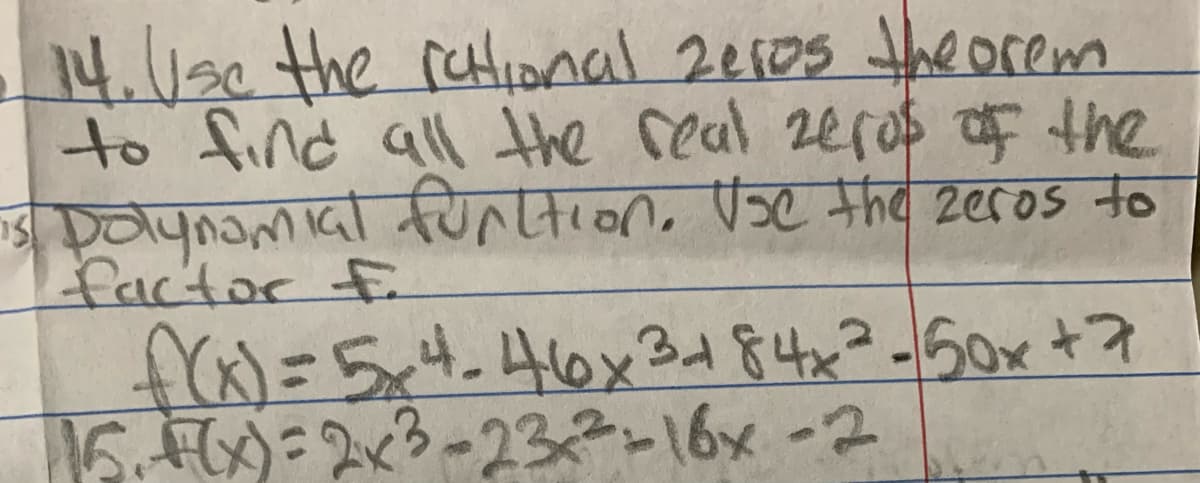 14. Use the rational zeros theorem
to find all the real zeros of the
polynomial function. Use the zeros to
factor f.
f(x) = 5x⁴ - 46x³ + 84x² - 50x + 7
15. f(x) = 2x³ - 23x² - 16x - 2